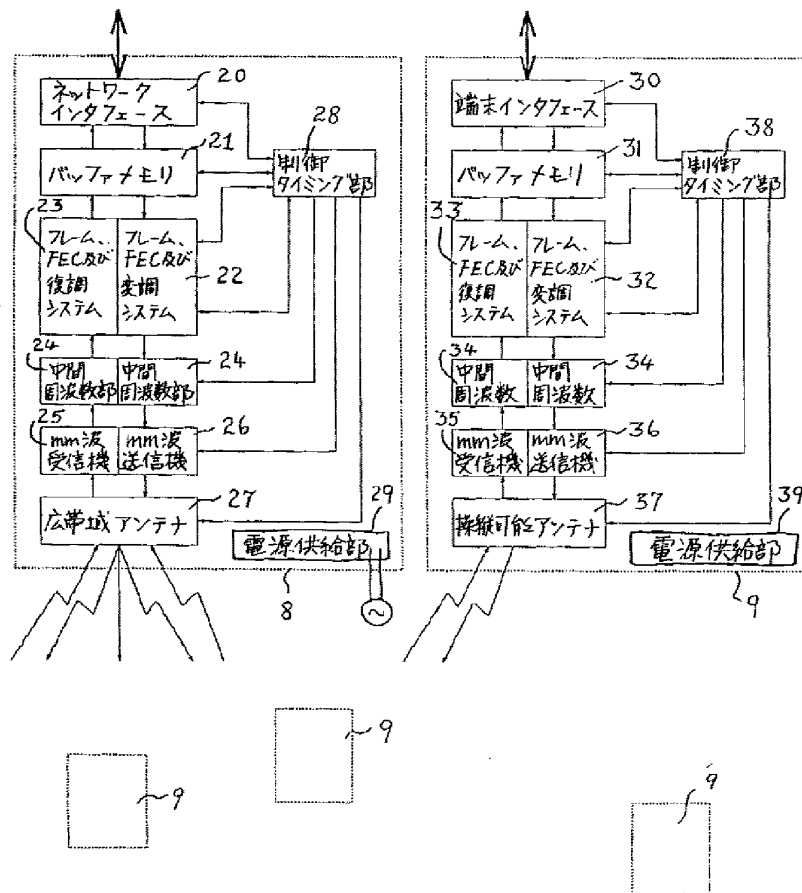 20
ネットワーク
インタフェース
28
制御
タイミング部
21
バッファメモリ
23
フレーム、
FEC及び
復調
システム
フレーム、
FEC及び
変調
システム
22
24
中間
周波数部
中間
周波数部
24
25
mm波
受信機
mm波
送信機
26
27
広帯域アンテナ
29
電源供給部
8
30
端末インタフェース
38
制御
タイミング部
31
バッファメモリ
33
フレーム、
FEC及び
復調
システム
フレーム、
FEC及び
変調
システム
32
34
中間
周波数
中間
周波数
34
35
mm波
受信機
mm波
送信機
36
37
操縦可能アンテナ
39
電源供給部
9
9
9
9